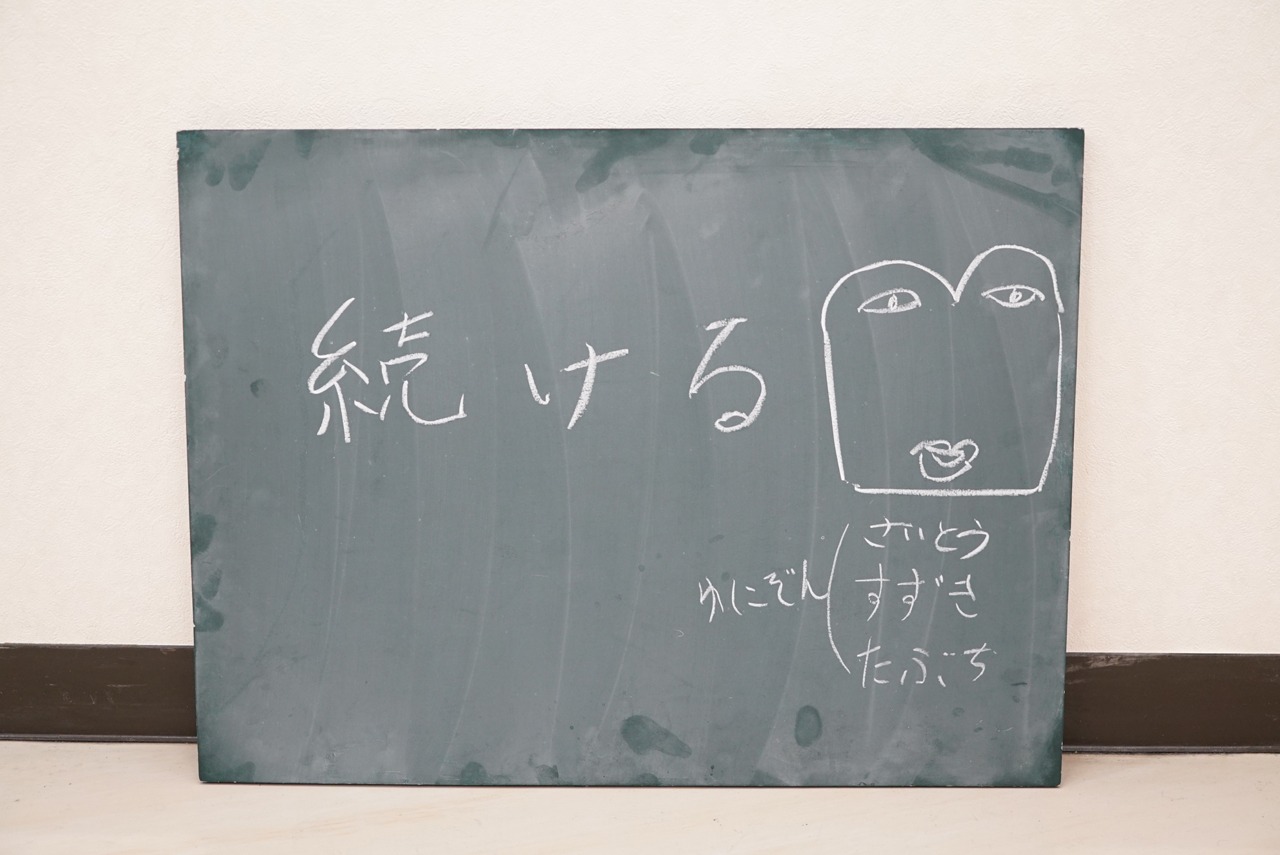 続ける
ゆにぞん
さいとう
すずき
たぶち